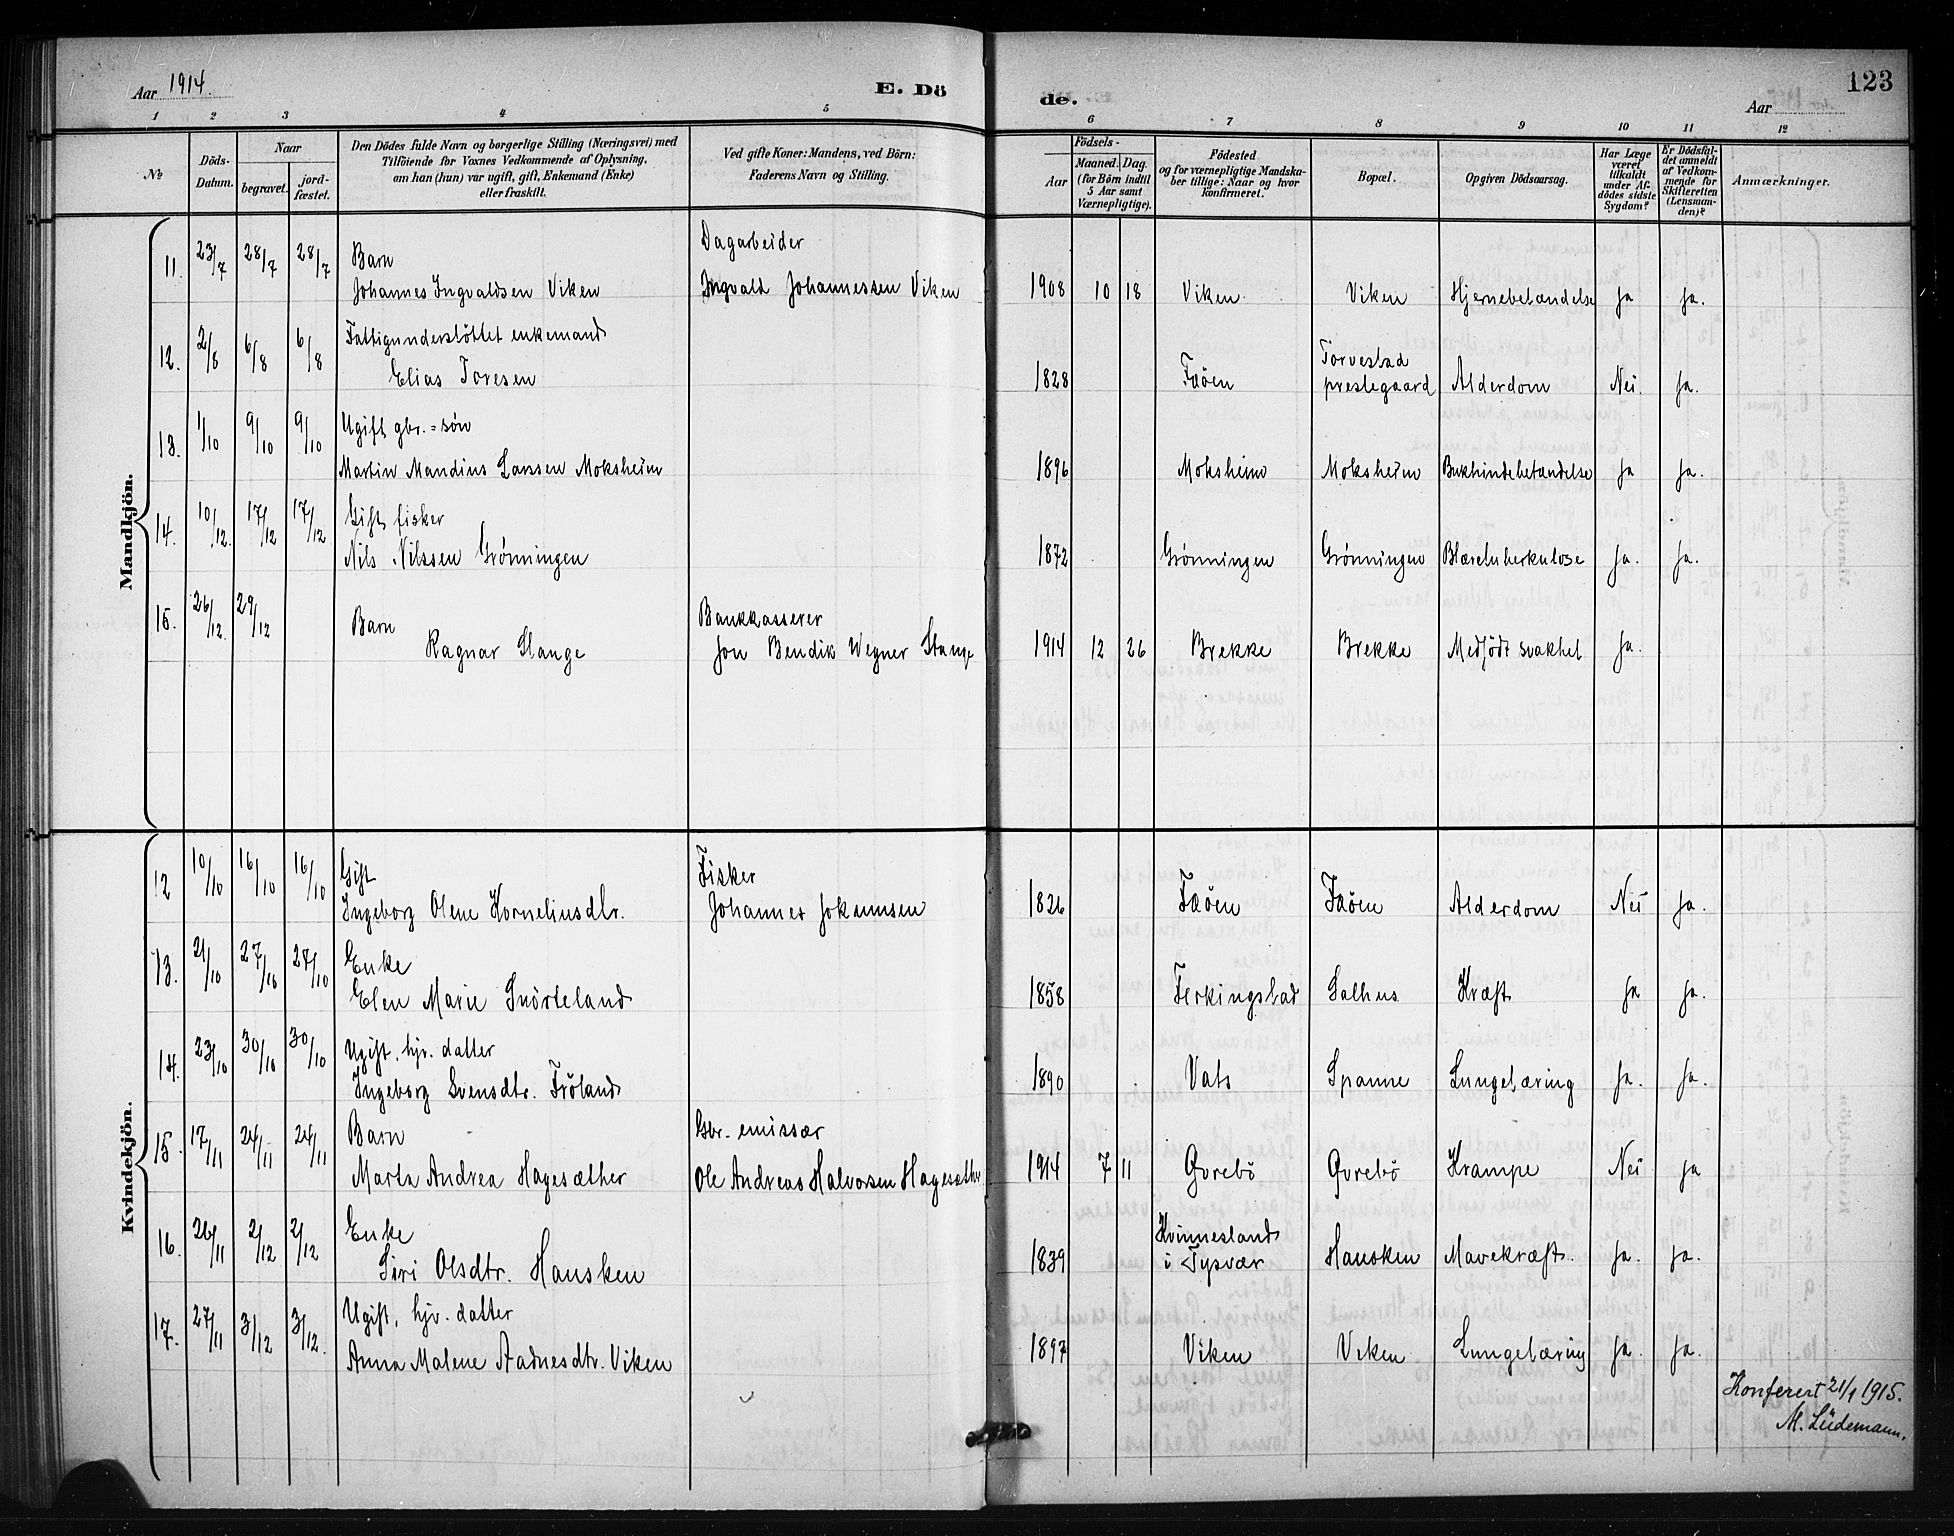 Aar 1914.
E. Dö
de.
Aar
123
1 2 3 4 5 6 7 8 9 10 11 12
№
Döds-Datum.
Naar
begravet.
jord-fæstet.
Den Dödes fulde Navn og borgerlige Stilling (Næringsvei) med
Tilföiende for Voxnes Vedkommende af Oplysning,
om han (hun) var ugift, gift, Enkemand (Enke)
eller fraskilt.
Ved gifte Koner: Mandens, ved Börn:
Faderens Navn og Stilling.
Födsels-
Aar
Maaned. Dag.
(for Börn indtil
5 Aar samt
Værnepligtige).
Födested
og for værnepligtige Mandska-
ber tillige: Naar og hvor
konfirmeret.
Bopæl.
Opgiven Dödsaarsag.
Har Læge
været
tilkaldt
under Af-
dödes sidste
Sygdom?
Er Dödsfal-
det anmeldt
af Vedkom-
mende for
Skifteretten
(Lensman-
den)?
Anmærkninger.
Mandkjön.
11. 23/7 28/7 28/7 Barn Dagarbeider
Johannes Ingvaldsen Viken Ingvald Johannessen Viken 1908 10 18 Viken Viken Hjernebetændelse Ja Ja.
12. 2/8 6/8 6/8 Fattigunderstöttet enkemand Torvestad
Elias Toresen 1828 Fæöen prestegaard Alderdom Nei. Ja.
13. 1/10 9/10 9/10 Ugift gbr.=søn
Martin Mandius Larssen Moksheim 1896 Moksheim Moksheim Bukhindebetændelse Ja Ja.
14. 10/12. 17/12 17/12 Gift fisker
Nils Nilssen Grønningen 1872 Grønningen Grønningen Blæretuberkulose Ja. Ja.
15. 26/12. 29/12 Barn Bankkasserer
Ragnar Stange Jon Bendik Wegner Stange 1914 12 26 Brekke Brekke Medfödt svakhet Ja.
Kvindekjön.
12 10/10 16/10 16/10 Gift Fisker
Ingeborg Olene Korneliusdtr. Johannes Jokumsen 1826 Fæöen Fæöen Alderdom Nei Ja.
13. 21/10 27/10 27/10 Enke
Elen Marie Snörteland 1858 Ferkingstad Salhus Kræft Ja Ja.
14. 23/10 30/10 30/10 Ugift, hjv. datter
Ingeborg Svensdtr. Fröland 1890 Vats Spanne Lungetæring Ja. Ja.
15. 17/11 24/11 24/11 Barn Gbr. emissær
Marta Andrea Hagesæther Ole Andreas Halvorsen Hagesæther 1914 7 11 Gvrebö Gvrebö Krampe Nei Ja
16. 26/11 2/12 2/12 Enke Kvinnesland
Siri Olsdtr. Hausken 1839 i Tysvær Hausken Mavekræft. Ja. Ja.
17. 27/11 3/12 3/12. Ugift, hjv. datter
Anna Malene Aadnesdtr. Viken 1897 Viken Viken Lungetæring Ja. Ja.
Konferert 21/1 1915.
M. Lüdemann.